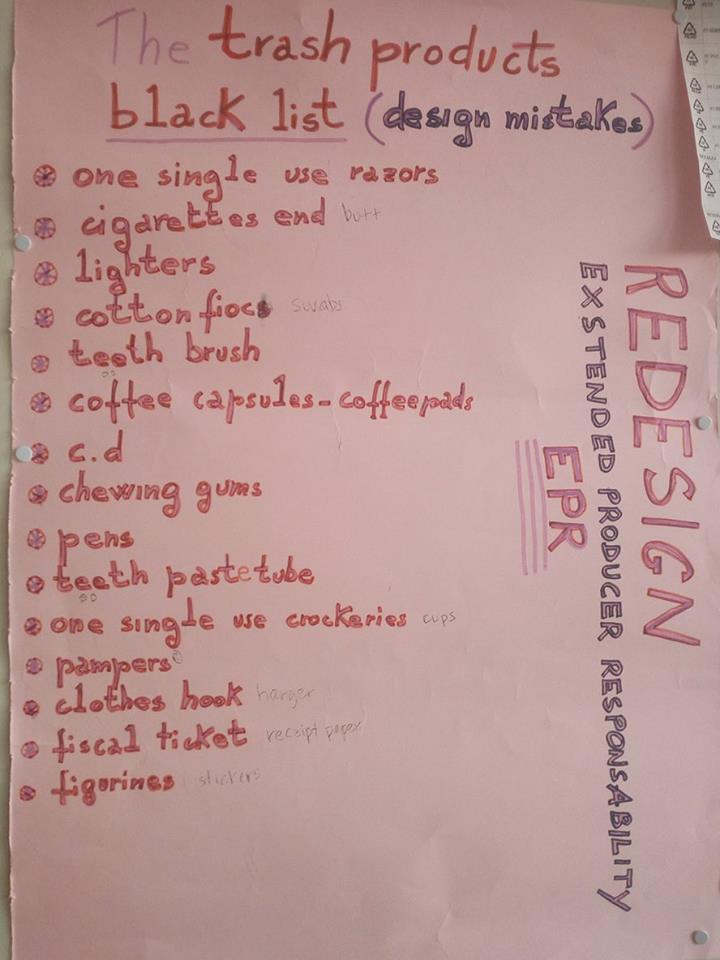 The trash products
black list (design mistakes)
one single use razors
cigarettes end butt
lighters
cotton fiocs swabs
teeth brush
coffee capsules-coffeepads
c.d
chewing gums
pens
teeth pastetube
one single use crockeries cups
pampers
clothes hook hanger
fiscal ticket receipt paper
figurines stickers
REDESIGN
EXSTENDED PRODUCER RESPONSABILITY
EPR